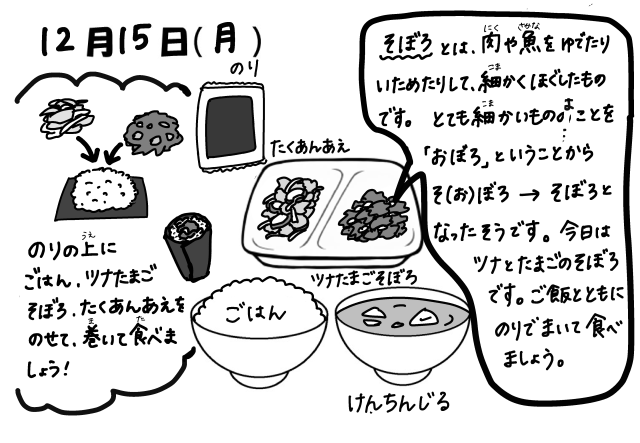 12月15日(月)
のり
のりの上に
うえ
ごはん、ツナたまご
そぼろ、たくあんあえを
のせて、巻いて食べま
ま
た
しょう!
たくあんあえ
ツナたまごそぼろ
ごはん
けんちんじる
そぼろとは、肉や魚をゆでたり
にく
さかな
いためたりして、細かくほぐしたもの
こま
です。とても細かいもののことを
こま
「おぼろ」ということから
そ(お)ぼろ → そぼろと
なったそうです。今日は
ツナとたまごのそぼろ
です。ご飯とともに
のりでまいて食べ
ましょう。